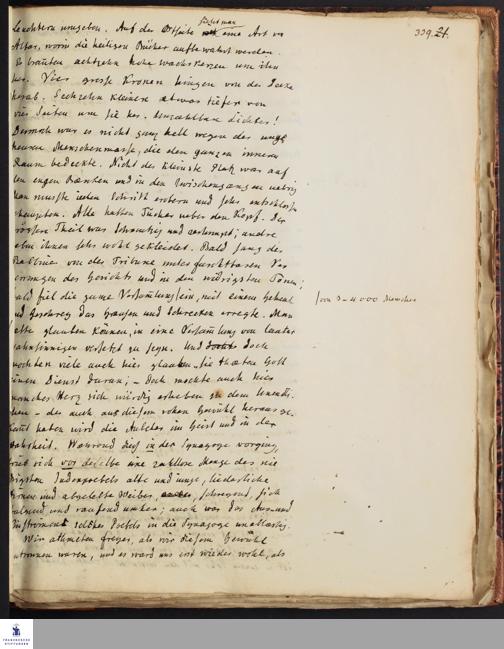 339. 21.
leuchtern umgeben. Auf der Ostseite sieht man eine Art von
Altar, worin die heiligen Bücher aufbewahrt werden.
Es brannten achtzehn hohe Wachskerzen um ihn
her. Vier grosse Kronen hingen von der Decke
herab. Sechzehn kleinere etwas tiefer von
vier Seiten um sie her. Unzählbare Lichter!
Dennoch war es nicht ganz hell wegen der unge
heuren Menschenmasse, die den ganzen innern
Raum bedeckte. Nicht der kleinste Platz war auf
den engen Bänken und in den Zwischengängen uebrig
Man musste jeden Schritt erobern und sehr
Alle hatten Tücher ueber den Kopf. Der
grössere Theil war schmutzig und zerlumpt; andre
eben ihnen sehr wohl gekleidet. Bald sang der
Rabbine von der Tribune unter furchtbaren Ver
zerrungen des Gesichts und in den widrigsten Tönen;
bald fiel die ganze Versamlung ein, mit einem Geheul
und Geschrey das Grausen und Schrecken erregte. Man
hätte glauben können, in eine Versamlung von lauter
Wahnsinnigen versetzt zu seyn. Und doch
mochten viele auch hier glauben, sie thäten Gott
einen Dienst daran; – doch mochte auch hier
manches Herz sich würdig erheben zu dem
– der auch aus diesem rohen Gewühl heraus
haben wird die Anbeter im Geist und in der
Wahrheit. Während dies in der Synagoge vorging,
trieb sich vor derselbe eine zahllose Menge des nie
drigsten Judenpoebels alte und junge, liederliche
Dirnen und abgelebte Weiber, schreyend, sich
balgend und raufend umher; auch war das
solches Poebels in die Synagoge
Wir athmeten freyer, als wir diesem Gewühl
entronnen waren, und es ward uns erst wieder wohl, als
von 3–4000 Menschen
FRANCKESCHE
STIFTUNGEN